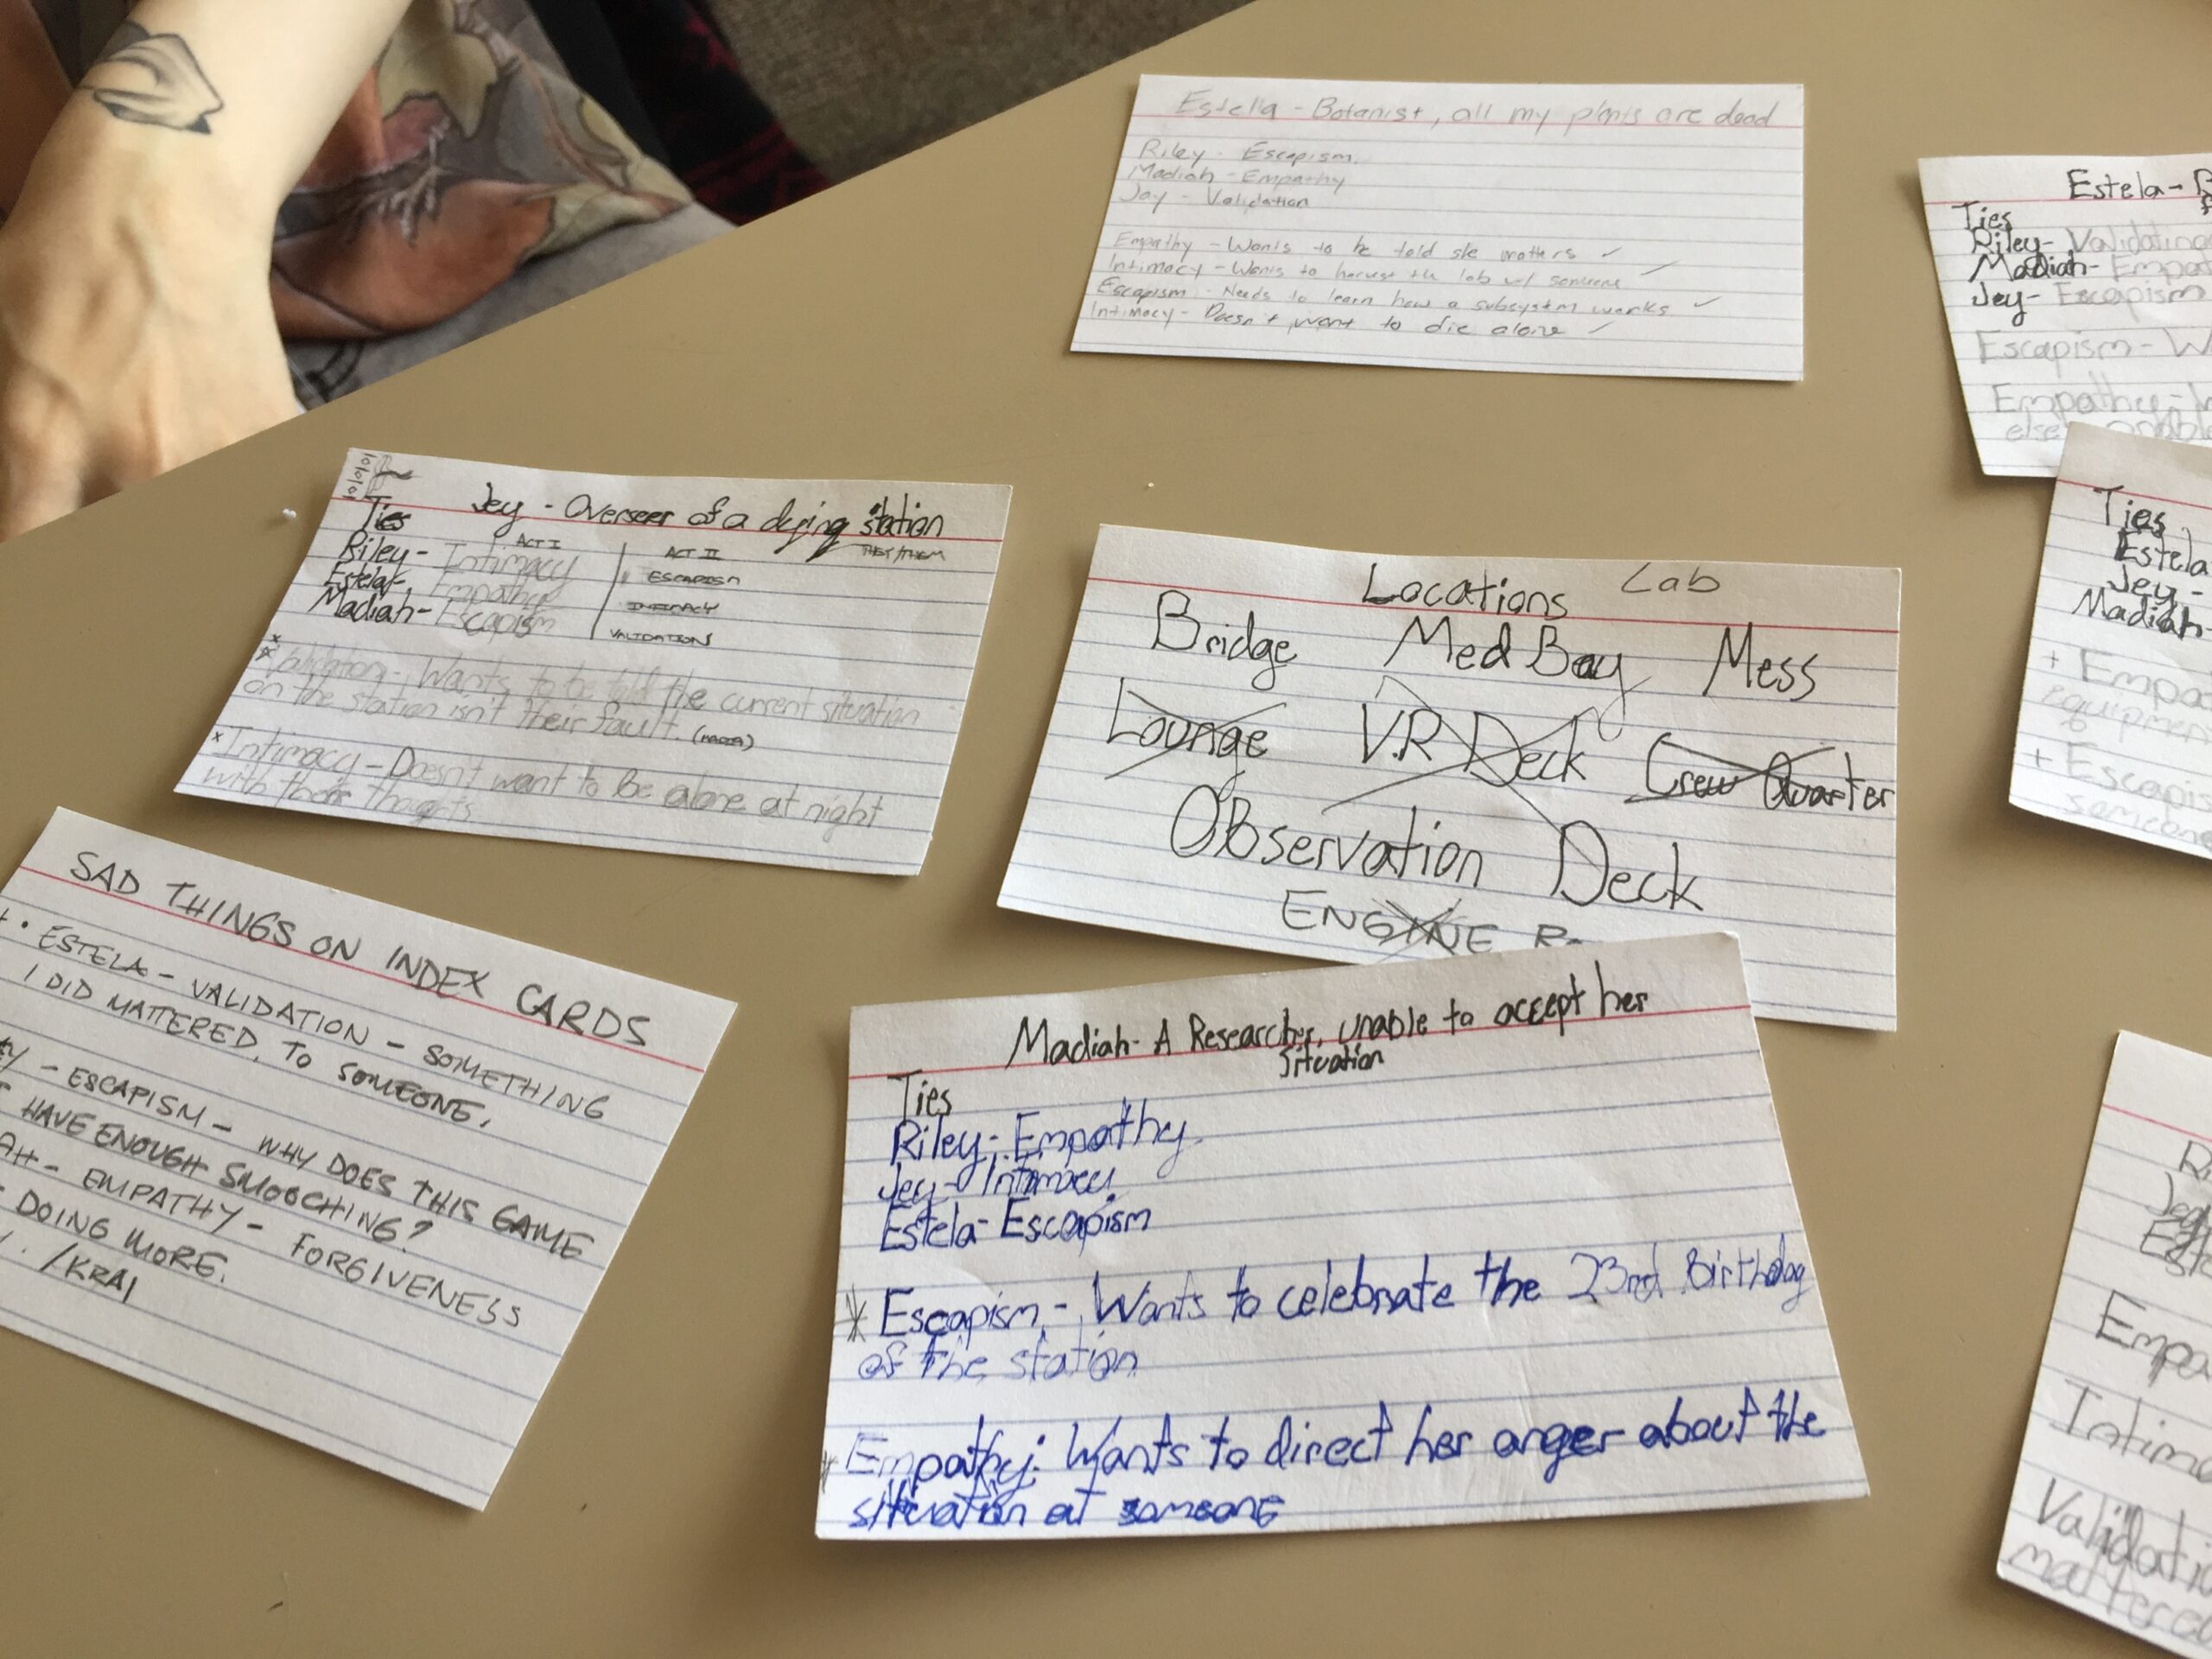 Estella - Botanist, all my plants are dead
Riley - Escapism
Madiah - Empathy
Jay - Validation
Empathy - Wants to be told she matters ✓
Intimacy - Wants to harvest the lab w/ someone ✓
Escapism - Needs to learn how a subsystem works ✓
Intimacy - Doesn't want to die alone ✓
Estela -
Ties
Riley- Validating
Madiah- Empat
Jey- Escapism
Escapism - W
Empathy -
else
Jey - Overseer of a dying station
THEY/THEM
Ties
ACT I
ACT II
Riley- Intimacy
ESCAPISM
Estela- Empathy
INTIMACY
Madiah- Escapism
VALIDATION
Validation - Wants to be told the current situation
on the station isn't their fault.
Intimacy - Doesn't want to be alone at night
with their thoughts
Locations Lab
Bridge Med Bay Mess
Lounge V.R Deck Crew Quarter
Observation Deck
ENGINE
Ties
Estela
Jey -
Madiah-
+ Empa
equipmen
+ Escapis
someone
SAD THINGS ON INDEX CARDS
• ESTELA - VALIDATION - SOMETHING
I DID MATTERED, TO SOMEONE,
- ESCAPISM - WHY DOES THIS GAME
HAVE ENOUGH SMOOCHING?
- EMPATHY - FORGIVENESS
DOING MORE.
/KRAI
Madiah- A Researcher, unable to accept her
Situation
Ties
Riley- Empathy
Jey- Intimacy
Estela- Escapism
* Escapism - Wants to celebrate the 23rd Birthday
of the station
* Empathy: Wants to direct her anger about the
situation at someone
R
Jey
Este
Empa
Intima
Validatio
mattered